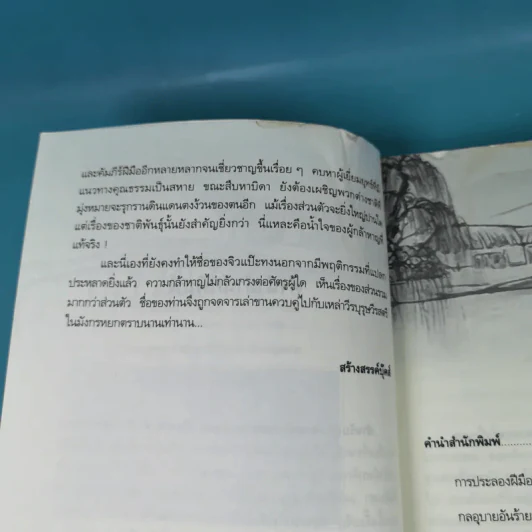 และคัมภีร์ฝีมืออีกหลายหลากจนเชี่ยวชาญขึ้นเรื่อย ๆ คบหาผู้เยี่ยมยุทธ์ที่มี
แนวทางคุณธรรมเป็นสหาย ขณะสืบหาบิดา ยังต้องเผชิญพวกต่างชาติที่
มุ่งหมายจะรุกรานดินแดนตงง้วนของตนอีก แม้เรื่องส่วนตัวจะยิ่งใหญ่ปานใด
แต่เรื่องของชาติพันธุ์นั้นยังสำคัญยิ่งกว่า นี่แหละคือน้ำใจของผู้กล้าหาญที่
แท้จริง !
และนี่เองที่ยังคงทำให้ชื่อของจิวแป๊ะทงนอกจากมีพฤติกรรมที่แปลก
ประหลาดยิ่งแล้ว ความกล้าหาญไม่กลัวเกรงต่อศัตรูผู้ใด เห็นเรื่องของส่วนรวม
มากกว่าส่วนตัว ชื่อของท่านจึงถูกจดจารเล่าขานควบคู่ไปกับเหล่าวีรบุรุษวีรสตรี
ในมังกรหยกตราบนานเท่านาน...
สร้างสรรค์บุ๊คส์
คำนำสำนักพิมพ์
การประลองฝีมือ
กลอุบายอันร้าย